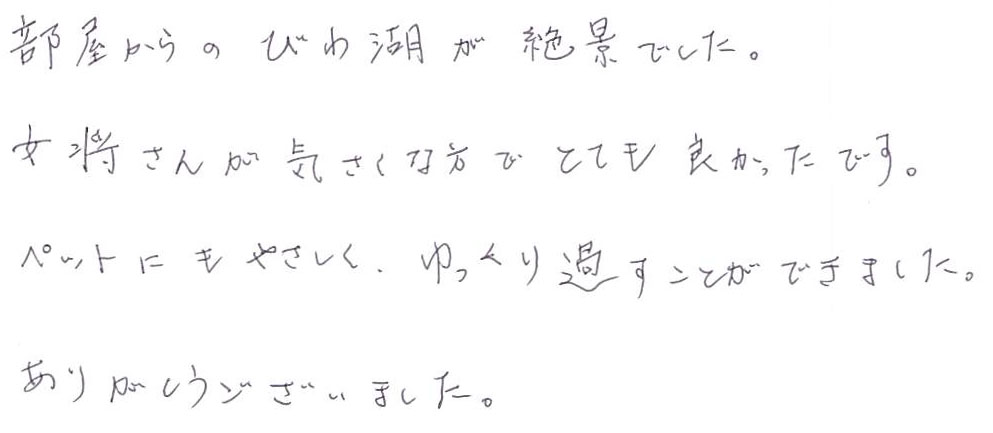 部屋からのびわ湖が絶景でした。
女将さんが気さくな方でとても良かったです。
ペットにもやさしく、ゆっくり過すことができました。
ありがとうございました。